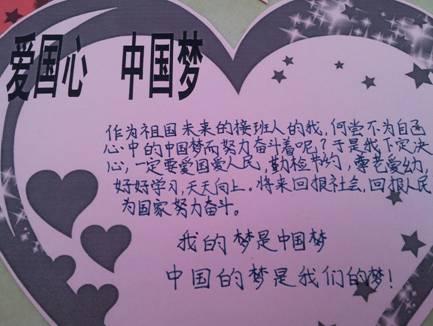 爱国心 中国梦
作为祖国未来的接班人的我,何尝不为自己
心中的中国梦而努力奋斗着呢?于是我下定决
心,一定要爱国爱人民,勤检节约,尊老爱幼
好好学习,天天向上。将来回报社会,回报人民
为国家努力奋斗。
我的梦是中国梦
中国的梦是我们的梦!